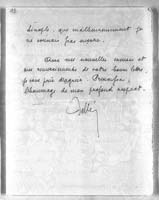 que malheureusement je
ne connais pas encore.
Avec mes nouvelles excuses et
mes remerciements de votre bonne lettre,
je vous prie d'agréer, Princesse,
l'hommage de mon profond respect.